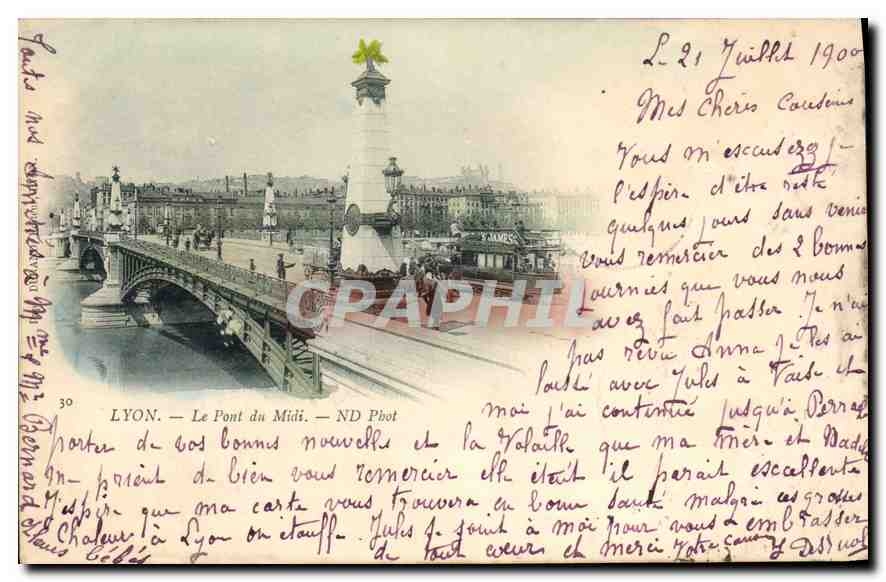 L. 21 Juillet 1900
Mes Chères Cousines
Vous m'excuserez je
l'espère d'être resté
quelques jours sans venir
vous remercier des 2 bonnes
journées que vous nous
avez fait passer. Je n'ai
pas revu Anna je les ai
laissé avec Jules à Vaise et
moi j'ai continué jusqu'à
porter de vos bonnes nouvelles et la Volaille que ma mère et
me prient de bien vous remercier elle était il parait excellente
J'espère que ma carte vous trouvera en bonne santé malgré ces grosses
Chaleur à Lyon on étouffe. Jules se joint à moi pour vous embrasser
de tout coeur et merci Votre
Toutes nos
Mme & Mr Bernard
bébés
ST JAMES
CPAPHIL
30
LYON. — Le Pont du Midi. — ND Phot